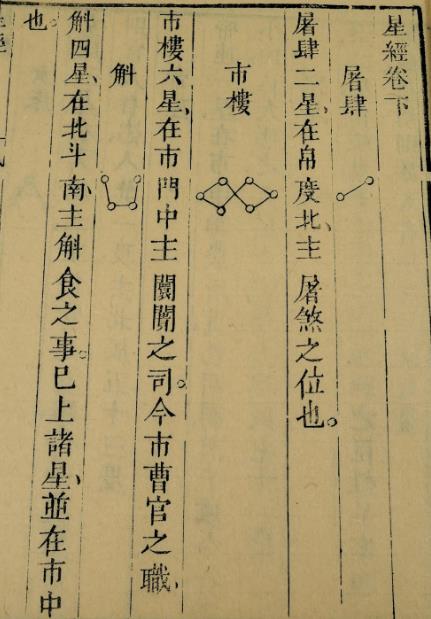 星經卷下
屠肆
屠肆二星、在帛度北、主屠煞之位也。
市樓
市樓六星、在市門中主闤闠之司。今市曹官之職、
斛
斛四星、在北斗南、主斛食之事。已上諸星、並在市中
也。